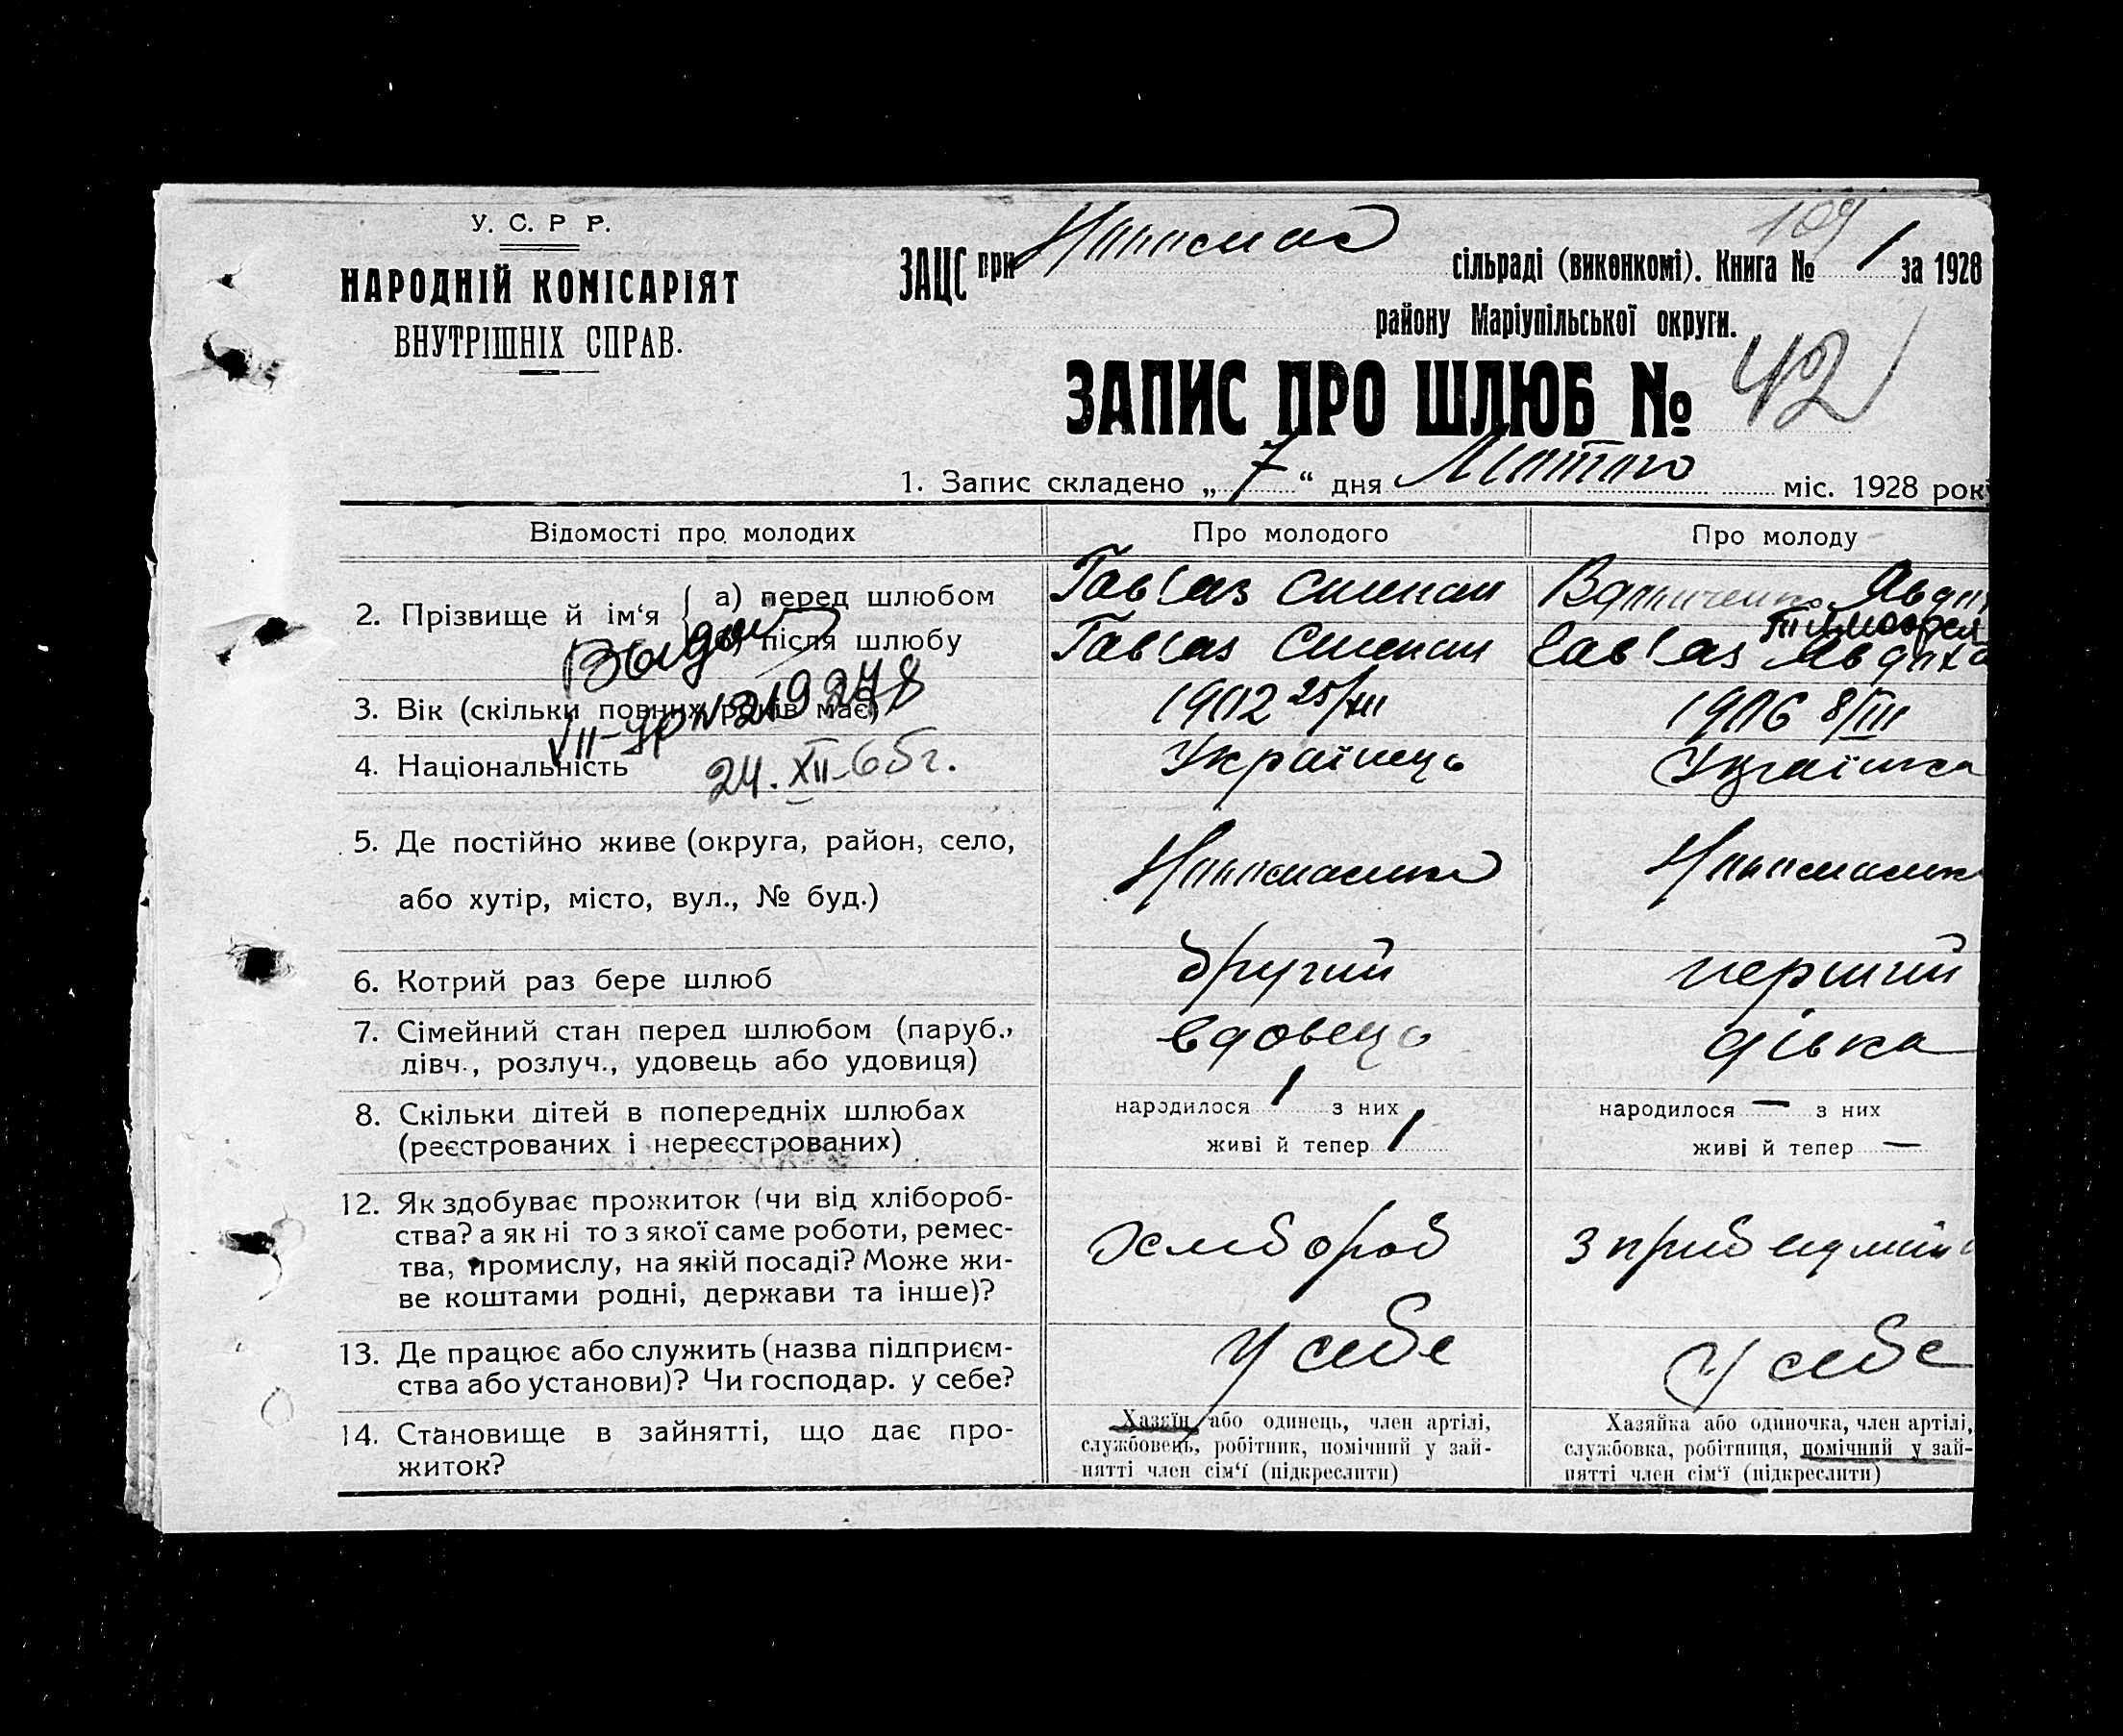 У. С. Р Р.
НАРОДНІЙ КОМІСАРІЯТ
ВНУТРІШНІХ СПРАВ.
109
ЗАЦС при сільраді (виконкомі). Книга № 1 за 1928
району Маріупільської округи.
ЗАПИС ПРО ШЛЮБ № 42
1. Запис складено „ 7 “ дня Лютого міс. 1928 рок
Відомості про молодих
Про молодого
Про молоду
2. Прізвище й ім‘я { а) перед шлюбом
б) після шлюбу
Степан
Степан
Явдох
Явдоха
Выдан
VII-
24. XII-65г.
3. Вік (скільки повних років має)
1902 25/XII
1906 8/III
4. Національність
Українець
Українка
5. Де постійно живе (округа, район, село,
або хутір, місто, вул., № буд.)
6. Котрий раз бере шлюб
другий
перший
7. Сімейний стан перед шлюбом (паруб.,
дівч., розлуч., удовець або удовиця)
вдовець
дівка
8. Скільки дітей в попередніх шлюбах
(реєстрованих і нереєстрованих)
народилося 1 з них
живі й тепер 1
народилося — з них
живі й тепер —
12. Як здобуває прожиток (чи від хлібороб-
ства? а як ні то з якої саме роботи, ремес-
тва, промислу, на якій посаді? Може жи-
ве коштами родні, держави та інше)?
хлібороб
13. Де працює або служить (назва підприєм-
ства або установи)? Чи господар. у себе?
у себе
у себе
14. Становище в зайнятті, що дає про-
житок?
Хазяїн або одинець, член артілі,
службовець, робітник, помічний у зай-
нятті член сім‘ї (підкреслити)
Хазяйка або одиночка, член артілі,
службовка, робітниця, помічний у зай-
нятті член сім‘ї (підкреслити)